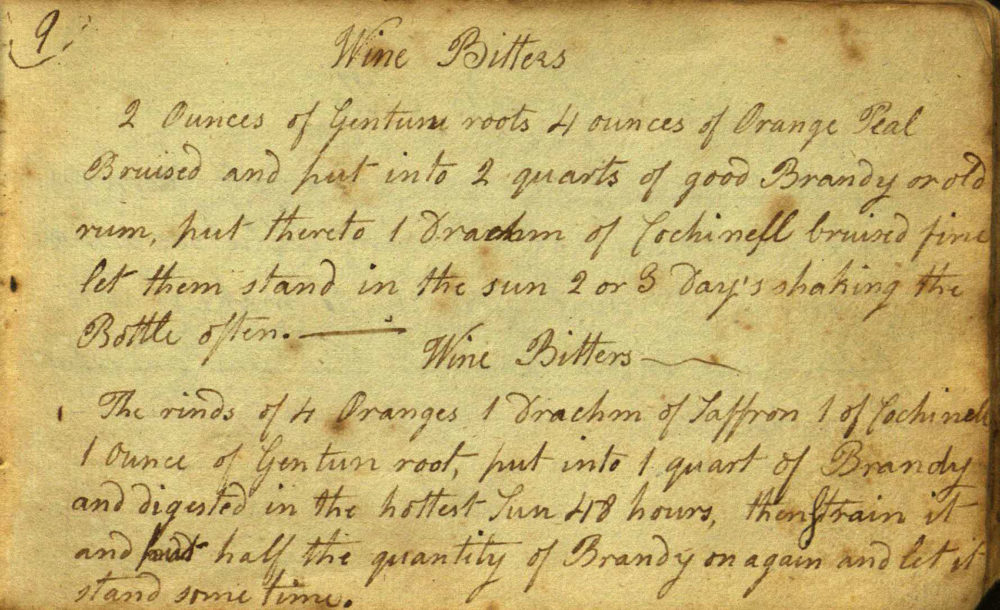 9.
Wine Bitters
2 Ounces of Gentian roots 4 ounces of Orange Peal
Bruised and put into 2 quarts of good Brandy or old
rum, put thereto 1 Drachm of Cochinell bruised fine
let them stand in the sun 2 or 3 Day's shaking the
Bottle often.
Wine Bitters
The rinds of 4 Oranges 1 Drachm of Saffron 1 of Cochinell
1 Ounce of Gentian root, put into 1 quart of Brandy
and digested in the hottest Sun 48 hours, then Strain it
and put half the quantity of Brandy on again and let it
stand some time.